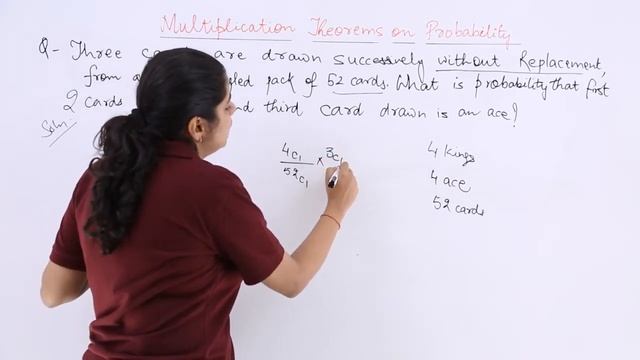 Multiplication Theorems on Probability
Q- Three are drawn successively without Replacement,
from a pack of 52 cards. What is probability that first
2 cards and third card drawn is an ace?
Soln
4c1 / 52c1 × 3c1
4 Kings
4 ace
52 cards